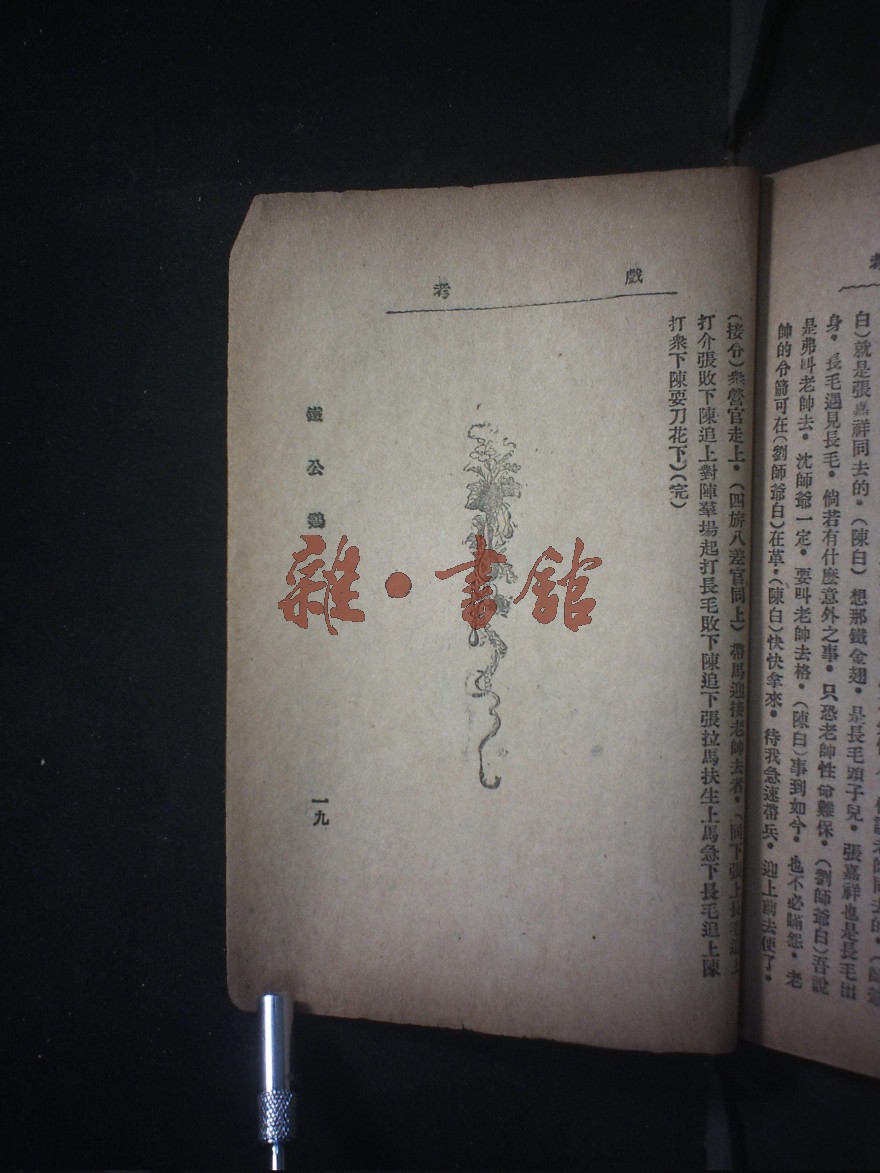 白）就是張嘉祥同去的。（陳白）想那鐵金翅。是長毛頭子兒。張嘉祥也是長毛出
身。長毛遇見長毛。倘若有什麽意外之事。只恐老帥性命難保。（劉師爺白）吾說
是弗叫老帥去。沈師爺一定。要叫老帥去格。（陳白）事到如今。也不必瞞怨。老
帥的令箭可在（劉師爺白）在革。（陳白）快快拿來。待我急速帶兵。迎上前去便了。
戲考
（接令）衆營官走上。（四旂八差官同上）帶馬迎接老帥去者。（同下張上長毛追上
打介張敗下陳追上對陣羣場起打長毛敗下陳追下張拉馬扶生上馬急下長毛追上陳
打衆下陳耍刀花下）（完）
鐵公鷄
一九
雜·書館